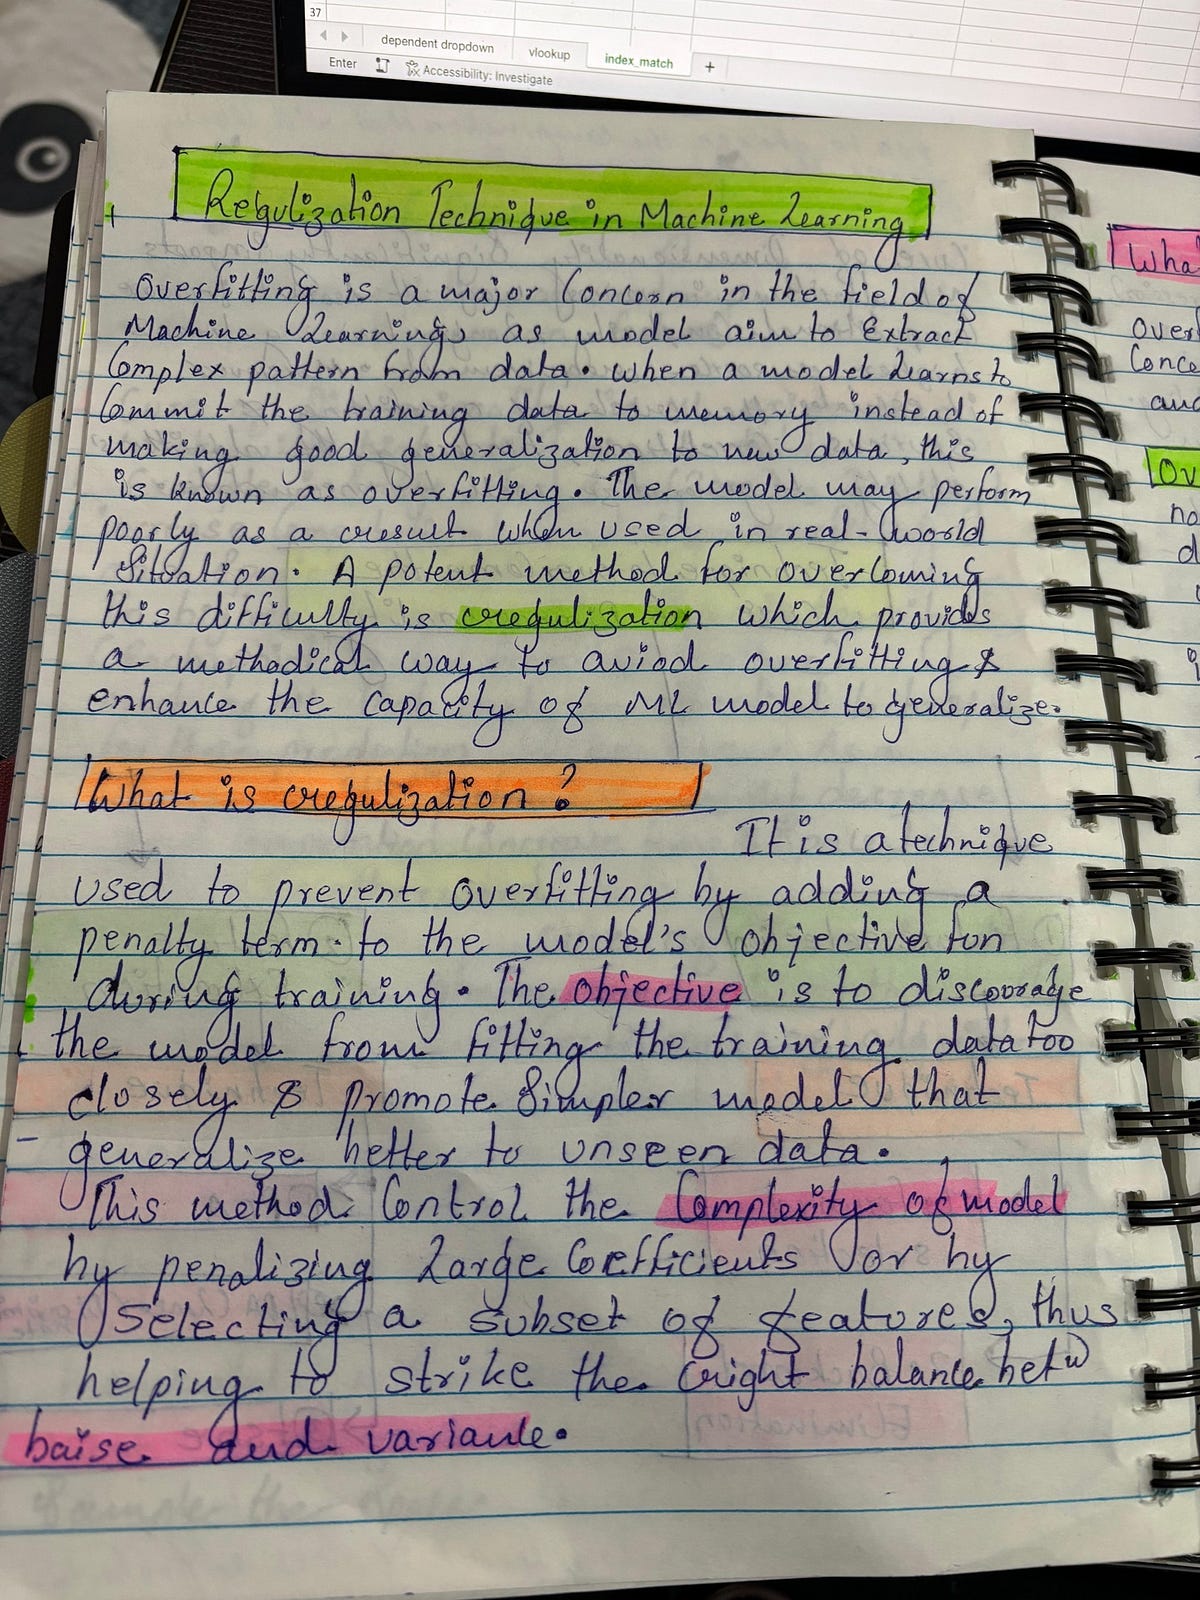 37
dependent dropdown vlookup index_match +
Enter Accessibility: Investigate
Regulization Technique in Machine Learning
Overfitting is a major Concern in the field of
Machine Learning, as model aim to Extract
Complex pattern from data. when a model Learns to
Commit the training data to memory instead of
making good generalization to new data, this
is known as overfitting. The model may perform
poorly as a result when used in real-world
Situation. A potent method for overcoming
this difficulty is regulization which provides
a methodical way to aviod overfitting &
enhance the capacity of ML model to generalize.
What is regulization ?
It is a technique
used to prevent overfitting by adding a
penalty term. to the model's objective fun
during training. The objective is to discourage
the model from fitting the training data too
closely & promote Simpler model that
generalize better to unseen data.
This method Control the Complexity of model
by penalizing Large Coefficients or by
Selecting a subset of features, thus
helping to strike the right balance betw
baise and variance.
Wha
over
Conce
and
Ov
no
d